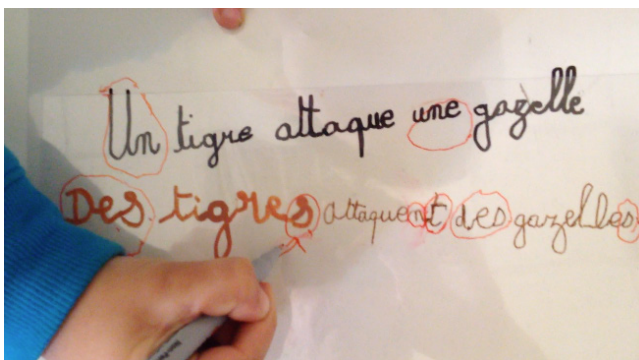 Un tigre attaque une gazelle
Des tigres attaquent des gazelles